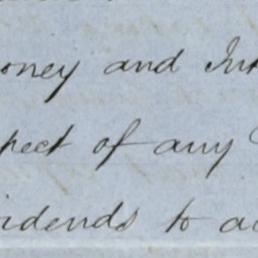 oney and Int
pect of any
idends to ac